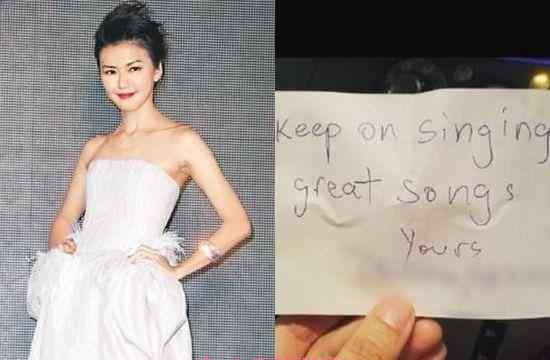 keep on singing
great songs
Yours